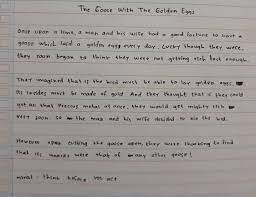 The Goose With The Golden Eggs
Once upon a time, a man and his wife had a good fortune to have a
goose which laid a golden eggs every day. Lucky though they were,
they soon began to think they were not getting rich fast enough.
They imagined that if the bird must be able to lay golden eggs,
its insides must be made of gold. And they thought that if they could
get all that precious metal at once, they would get mighty rich
very soon. So the man and his wife decided to kill the bird.
However upon cutting the goose open, they were shocking to find
that its innards were that of any other goose!
moral: think before you act